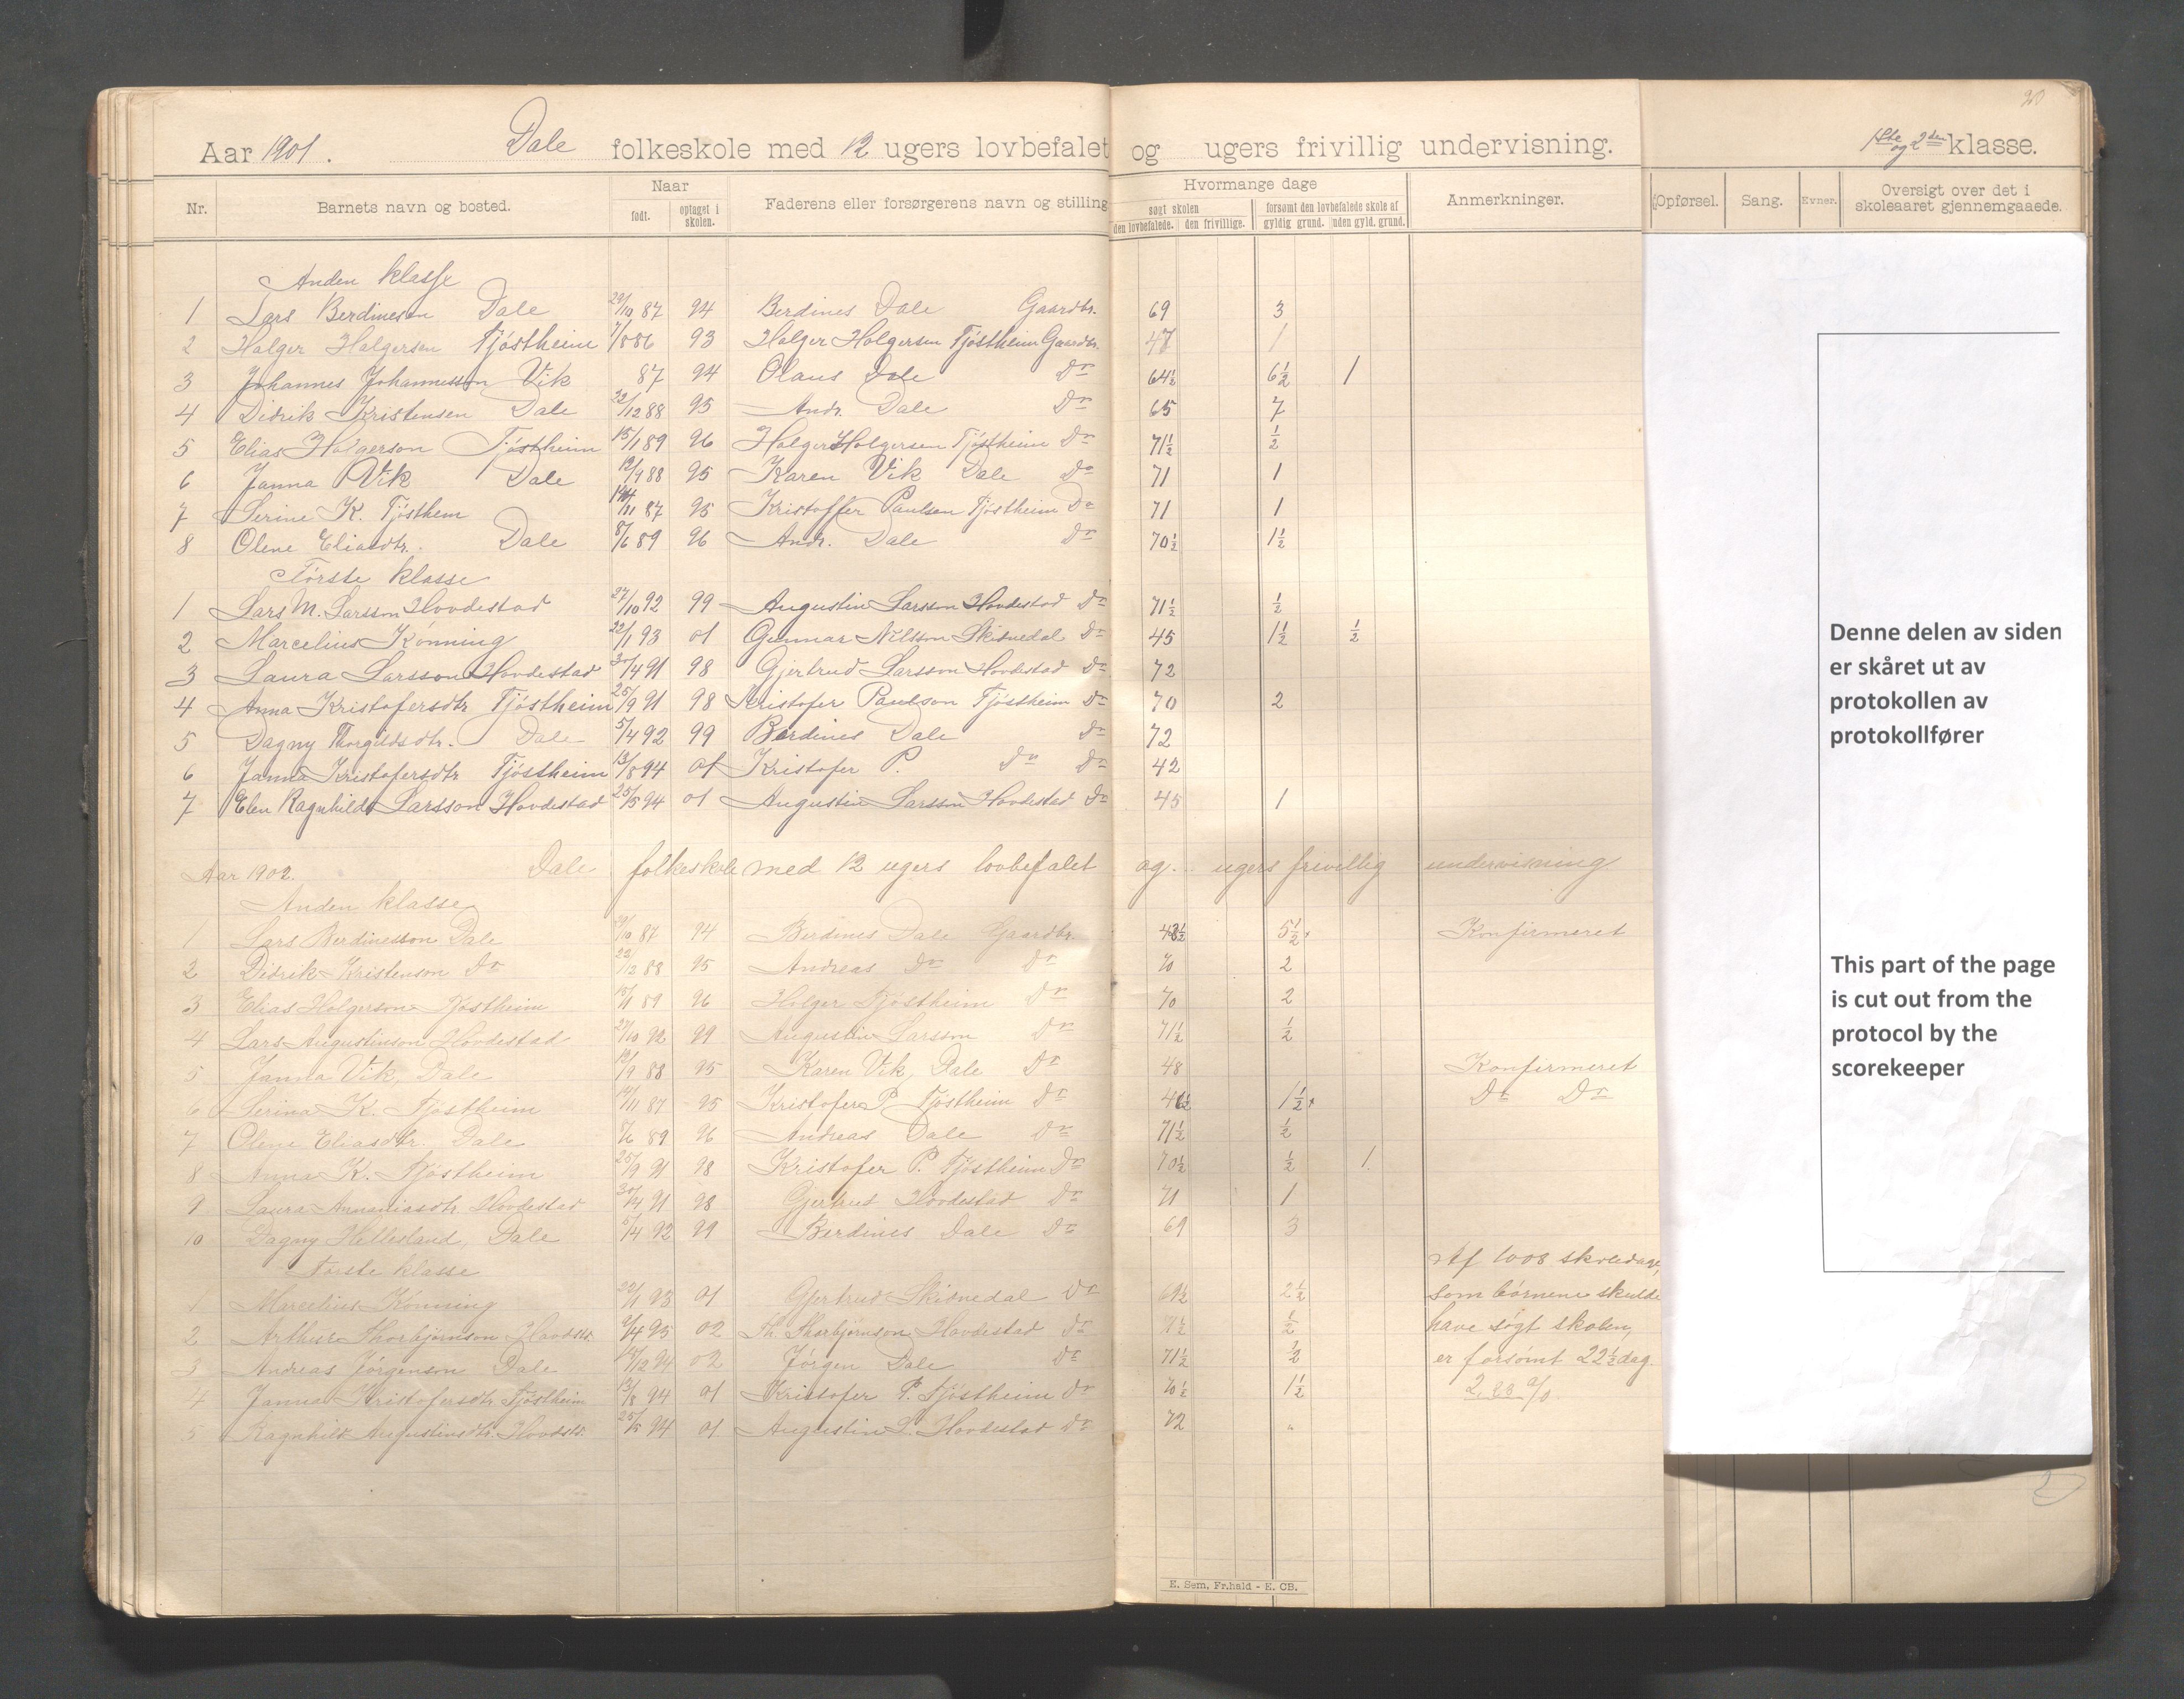 20
Aar 1901. Dale folkeskole med 12 ugers lovbefalet og ugers frivillig undervisning. 1ste og 2den klasse.
Nr. Barnets navn og bosted. Naar født. optaget i skolen. Faderens eller forsørgerens navn og stilling Hvormange dage søgt skolen den lovbefalede. den frivillige. forsømt den lovbefalede skole af gyldig grund. uden gyld. grund. Anmerkninger. Opførsel. Sang. Evner. Oversigt over det i skoleaaret gjennemgaaede.
Anden klasse
1 Lars Berdinesen Dale 29/10 87 94 Berdines Dale Gaardbr. 69 3
2 Holger Holgersen Tjóstheim 7/8 86 93 Holger Holgersen Tjóstheim Gaardbr. 47 1
3 Johannes Johannesson Vik 87 94 Olaus Dale Do 64½ 6½ 1
4 Didrik Kristensen Dale 22/12 88 95 Andr. Dale Do 65 7
5 Elias Holgerson Tjóstheim 15/1 89 96 Holger Holgersen Tjóstheim Do 71½ ½
6 Janna Vik Dale 12/9 88 95 Karen Vik Dale Do 71 1
7 Serine K. Tjósthem 14/11 87 95 Kristoffer Paulsen Tjóstheim Do 71 1
8 Olene Eliasdtr. Dale 8/6 89 96 Andr. Dale Do 70½ 1½
Fórste klasse
1 Lars M. Larsson Hovdestad 27/10 92 99 Augustin Larsson Hovdestad Do 71½ ½
2 Marcelius Kónning 22/1 93 01 Gunnar Nilsson Skisnedal Do 45 1½ ½
3 Laura Larsson Hovdestad 30/4 91 98 Gjertrud Larsson Hovdestad Do 72
4 Anna Kristofersdtr Tjóstheim 25/9 91 98 Kristofer Paulson Tjóstheim Do 70 2
5 Dagny Thorgildsdtr. Dale 5/4 92 99 Berdines Dale Do 72
6 Janna Kristofersdtr Tjóstheim 13/8 94 01 Kristofer P. Do Do 42
7 Elen Ragnhild Larsson Hovdestad 25/5 94 01 Augustin Larsson Hovdestad Do 45 1
Aar 1902. Dale folkeskole med 12 ugers lovbefalet og ugers frivillig undervisning
Anden klasse
1 Lars Berdinesson Dale 29/10 87 94 Berdines Dale Gaardbr. 43½ 5½ Konfirmeret
2 Didrik Kristenson Do 22/12 88 95 Andreas Do Do 70 2
3 Elias Holgerson Tjóstheim 15/1 89 96 Holger Tjóstheim Do 70 2
4 Lars Augustinson Hovdestad 27/10 92 99 Augustin Larsson Do 71½ ½
5 Janna Vik, Dale 12/9 88 95 Karen Vik, Dale Do 48 Konfirmeret
6 Serina K. Tjóstheim 14/11 87 95 Kristofer P. Tjóstheim Do 46½ 1½ Do Do
7 Olene Eliasdtr. Dale 8/6 89 96 Andreas Dale Do 71½ ½
8 Anna K. Tjóstheim 25/9 91 98 Kristofer P. Tjóstheim Do 70½ ½ 1
9 Laura Annaniasdtr. Hovdestad 30/4 91 98 Gjertrud Hovdestad Do 71 1
10 Dagny Hettesland, Dale 5/4 92 99 Berdines Dale Do 69 3
Fórste klasse
1 Marcelius Kónning 22/1 93 01 Gjertrud Skisnedal Do 69½ 2½
2 Arthur Thorbjórnson Hovdstd. 4 95 02 Th. Thorbjórnson Hovdestad Do 71½ ½
3 Andreas Jórgenson Dale 12 94 02 Jórgen Dale Do 71½ ½
4 Janna Kristofersdtr Tjóstheim 13/8 94 01 Kristofer P. Tjóstheim Do 70½ 1½
5 Ragnhild Augustinsdtr. Hovdstd. 25/5 94 01 Augustin L. Hovdestad Do 72 "
Af 1008 skoledage,
som bórnene skulde
have søgt skolen,
er forsømt 22½ dag.
2,23 %
E. Sem, Fr.hald - E. CB.
Denne delen av siden
er skåret ut av
protokollen av
protokollfører
This part of the page
is cut out from the
protocol by the
scorekeeper